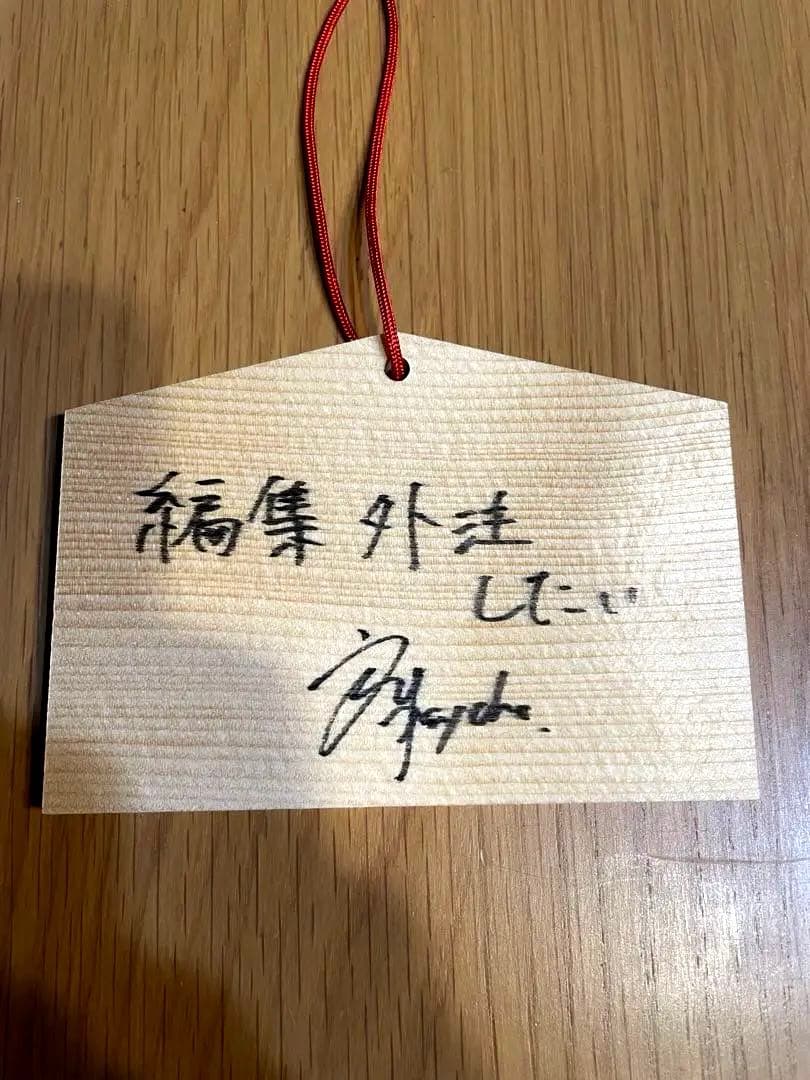 編集 外注
したい